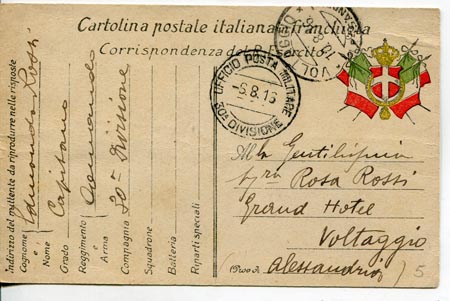 Cartolina postale italiana in franchigia
Corrispondenza del R. Esercito
UFFICIO POSTA MILITARE
-6.8.16
30ª DIVISIONE
VOLTAGGIO
Indirizzo del mittente da riprodurre nelle risposte
Cognome e Nome Rossi
Grado Capitano
Reggimento e Arma Comando
Compagnia 30ª Divisione
Squadrone
Batteria
Riparti speciali
Alla Gentilissima
Sig.ra Rosa Rossi
Grand Hotel
Voltaggio
Alessandria
5